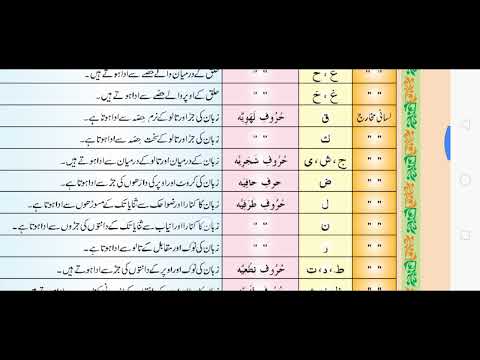 " " " " ع ، ح حلق کے درمیان والے حصّے سے ادا ہوتے ہیں۔
" " " " غ ، خ حلق کے اوپر والے حصّے سے ادا ہوتے ہیں۔
لسانی مخارج ق حُرُوفِ لَهَوِیَّه زبان کی جڑ اور تالو کے نرم حصّہ سے ادا ہوتا ہے۔
" " ك " " زبان کی جڑ اور تالو کے سخت حصّہ سے ادا ہوتا ہے۔
" " ج ، ش ، ی حُرُوفِ شَجَرِیَّه زبان کے درمیان اور تالو کے درمیان سے ادا ہوتے ہیں۔
" " ض حرفِ حافِیه زبان کی کروٹ اور اوپر کی داڑھوں کی جڑ سے ادا ہوتا ہے۔
" " ل حُرُوفِ طَرَفِیَّه زبان کا کنارا اور ضواحک سے ثنایا تک کے مسوڑھوں سے ادا ہوتا ہے۔
" " ن " " زبان کا کنارا اور انیاب سے ثنایا تک کی جڑوں سے ادا ہوتا ہے۔
" " ر " " زبان کی نوک اور مقابل کے تالو سے ادا ہوتا ہے۔
" " ط ، د ، ت حُرُوفِ نطعیّه زبان کی نوک اور اوپر کے دانتوں کی جڑ سے ادا ہوتے ہیں۔